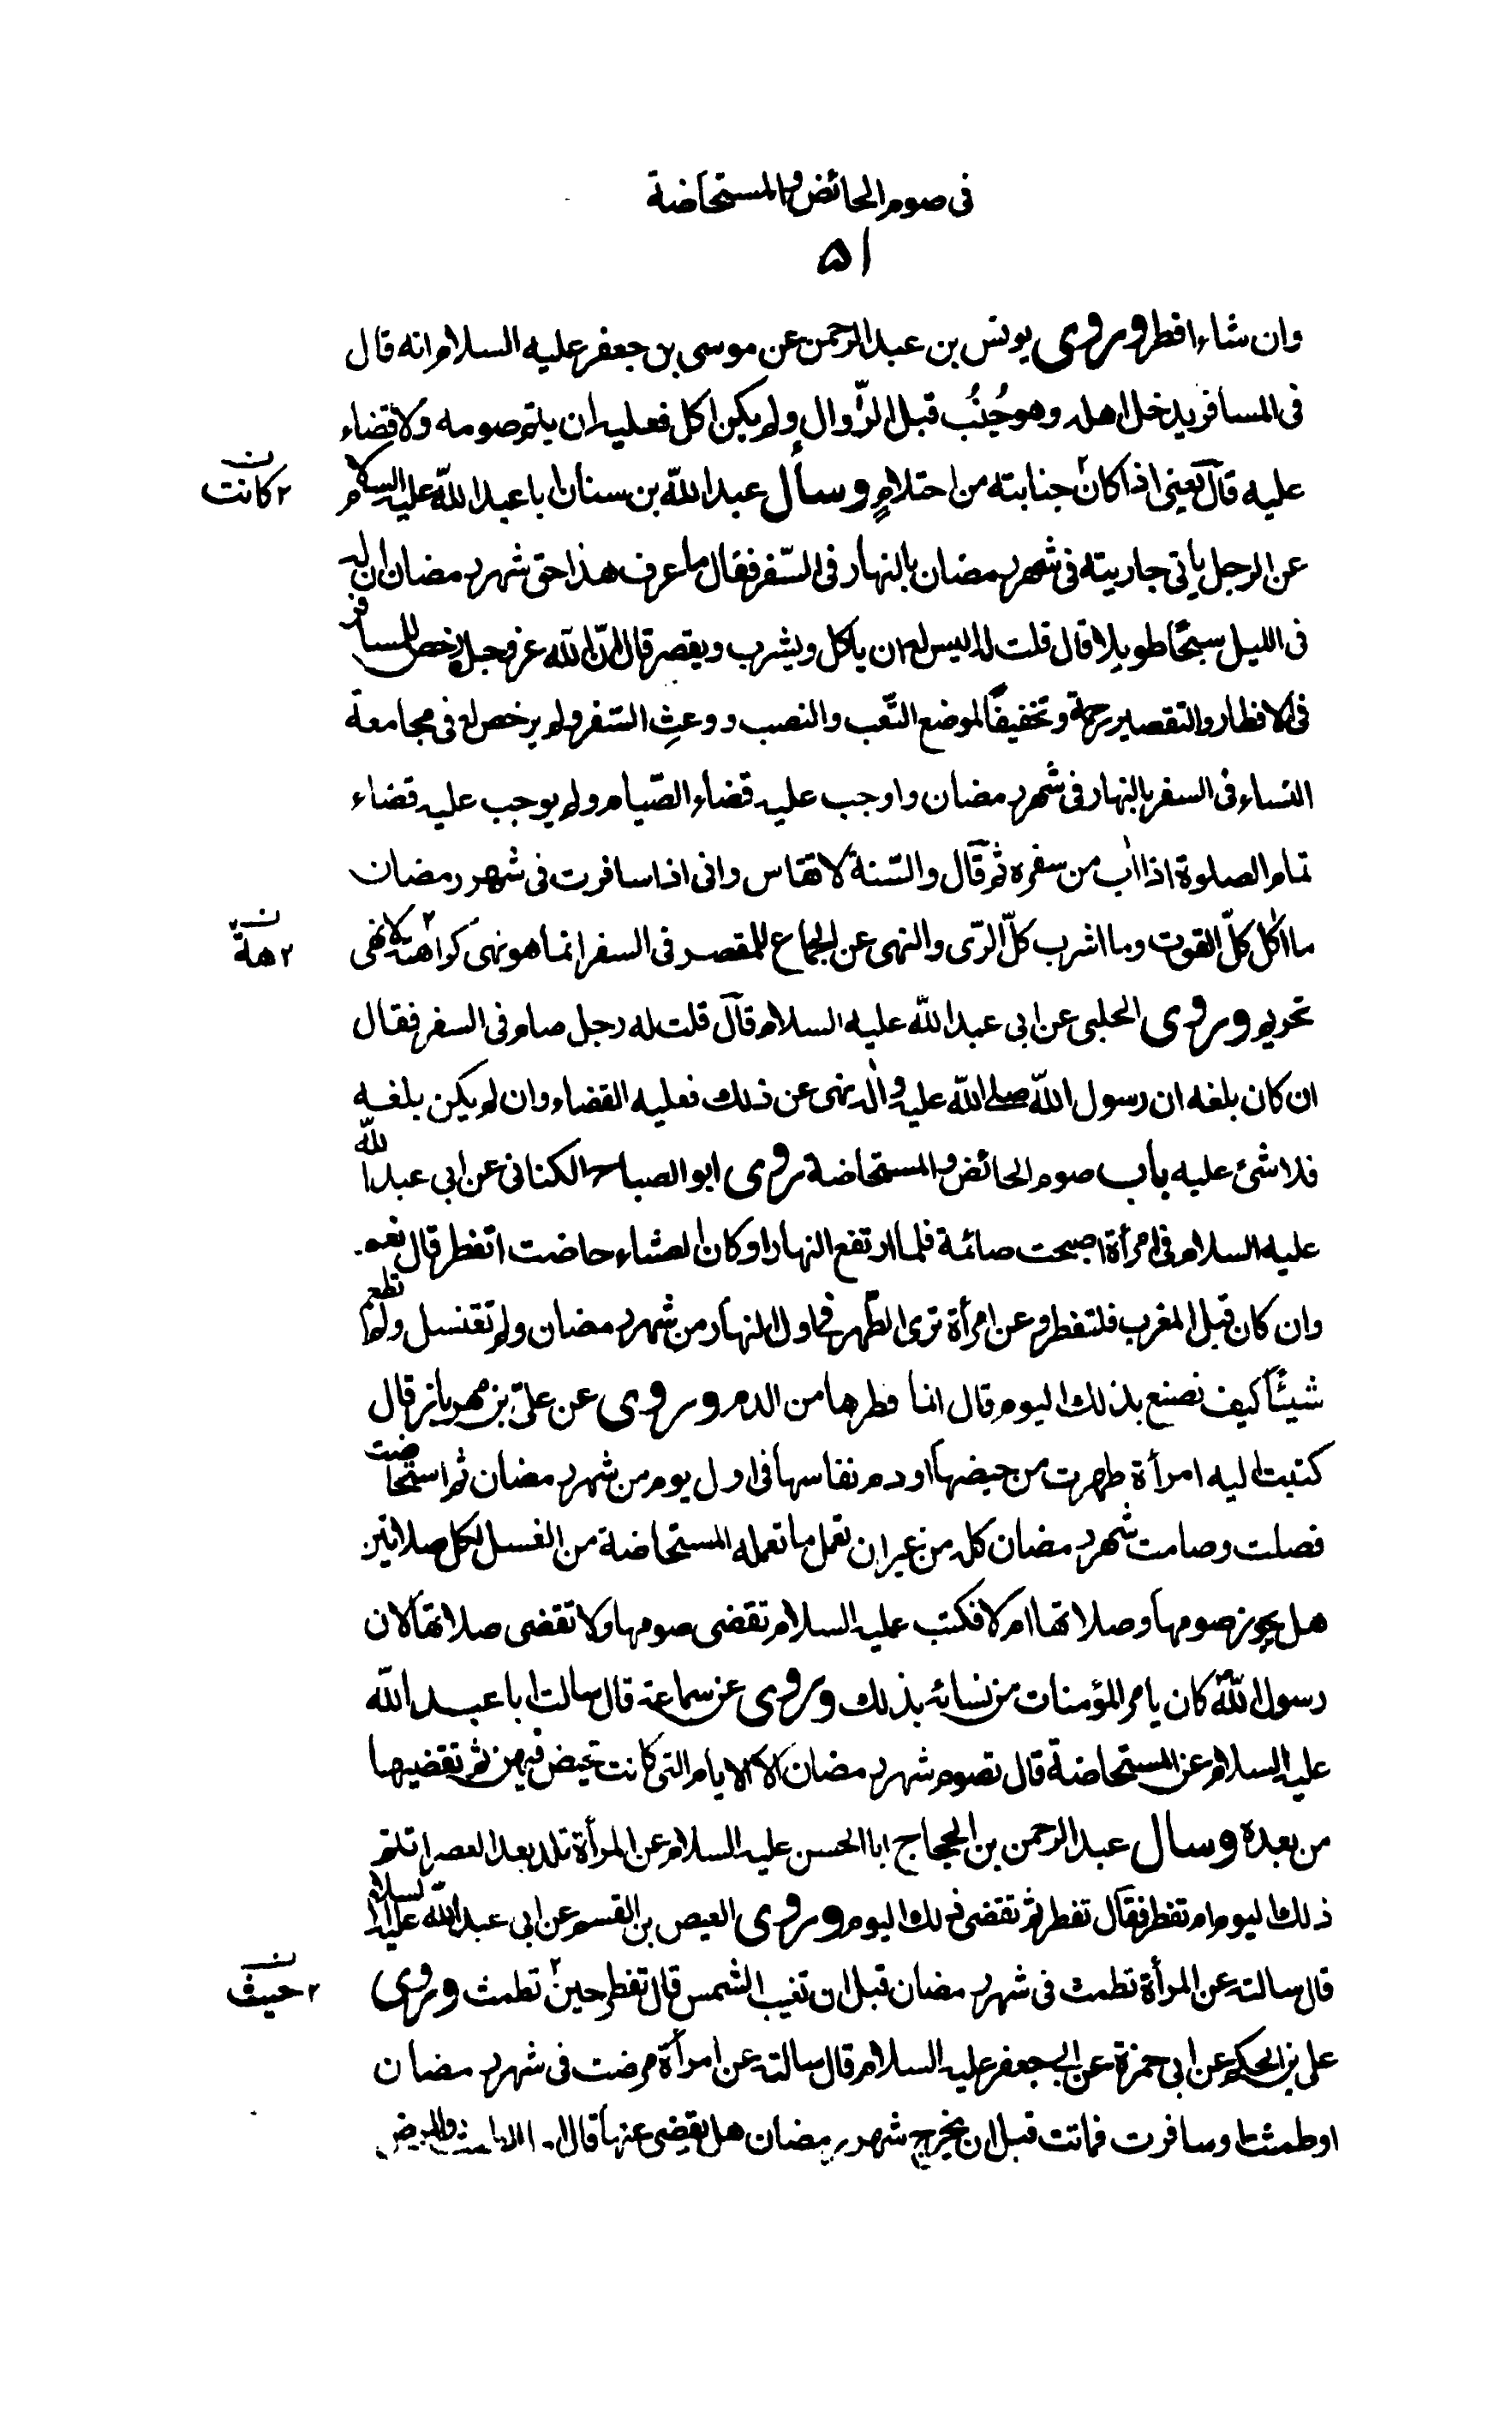 فی صوم الحائض والمستحاضة
۵۱
وان شاء افطر وروی یونس بن عبدالرحمن عن موسی بن جعفر علیه السلام انه قال
فی المسافر یدخل اهله وهو جُنُب قبل الزّوال ولم یکن اکل فعلیه ان یتم صومه ولا قضاء
علیه قال یعنی اذا کان۲ جنابته من احتلامٍ وسأل عبدالله بن سنان ابا عبدالله علیه السلام
۲ کانت ن
عن الرجل یأتی جاریته فی شهر رمضان بالنهار فی السّفر فقال ما عرف هذا حق شهر رمضان ان له
فی اللیل سبحًا طویلا قال قلت له الیس له ان یاکل ویشرب ویقصر قال انّ الله عز وجل رخص للمسافر
فی الافطار والتقصیر رحمة وتخفیفًا لموضع التّعب والنصب ووعثِ السّفر ولم یرخص له فی مجامعة
النساء فی السفر بالنهار فی شهر رمضان واوجب علیه قضاء الصّیام ولم یوجب علیه قضاء
تمام الصلوة اذا اب من سفره ثم قال والسّنة لا تقاس وانی اذا سافرت فی شهر رمضان
ما اکل کلّ القوت وما اشرب کلّ الرّی والنهی عن الجماع للمقصر فی السفر انما هو نهی کراهته۲ لا نهی
۲ هة ن
تحریم وروی الحلبی عن ابی عبدالله علیه السلام قال قلت له رجل صام فی السفر فقال
ان کان بلغه ان رسول الله صلی الله علیه واٰله نهی عن ذلك فعلیه القضاء وان لم یکن بلغه
فلا شئ علیه باب صوم الحائض والمستحاضة روی ابو الصباح الکنانی عن ابی عبدالله
علیه السلام فی امرأة اصبحت صائمة فلما ارتفع النهار او کان العشاء حاضت اتفطر قال نعم
وان کان قبل المغرب فلتفطر وعن امرأة تری الطّهر فی اول النهار من شهر رمضان ولم تغتسل ولم تطعم
شیئًا کیف تصنع بذلك الیوم قال انما فطرها من الدم وروی عن علیّ بن مهزیار قال
کتبت الیه امرأة طهرت من حیضها او دم نفاسها فی اول یوم من شهر رمضان ثم استحاضت
فصلت وصامت شهر رمضان کله من غیر ان تعمل ما تعمله المستحاضة من الغسل لکل صلاتین
هل یجوز صومها وصلاتها ام لا فکتب علیه السلام تقضی صومها ولا تقضی صلاتها لان
رسول اللهؐ کان یامر المؤمنات من نسائه بذلك وروی عن سماعة قال سالت ابا عبدالله
علیه السلام عن المستحاضة قال تصوم شهر رمضان الا الایام التی کانت تحیض فیهن ثم تقضیها
من بعده وسال عبدالرحمن بن الحجاج ابا الحسن علیه السلام عن المرأة تلد بعد العصر اتتم
ذلك الیوم ام تفطر فقال تفطر ثم تقضی ذلك الیوم وروی العیص بن القسم عن ابی عبدالله علیه السلام
قال سالته عن المرأة تطمث فی شهر رمضان قبل ان تغیب الشمس قال تفطر حین۲ تطمث وروی
۲ حیث ن
علی بن الحکم عن ابی حمزة عن ابی جعفر علیه السلام قال سالته عن امرأة مرضت فی شهر رمضان
او طمثت او سافرت فماتت قبل ان یخرج شهر رمضان هل یقضی عنها قال